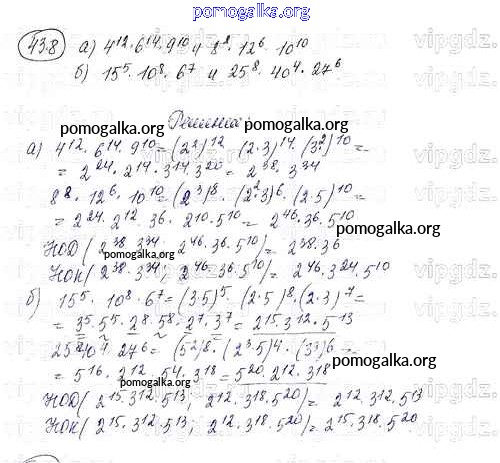 pomogalka.org
438 а) 4¹²·6¹⁴·9¹⁰ и 8⁸·12⁶·10¹⁰
б) 15⁵·10⁸·6⁷ и 25⁸·40⁴·27⁶
Решение:
pomogalka.org
pomogalka.org
а) 4¹²·6¹⁴·9¹⁰=(2²)¹²·(2·3)¹⁴·(3²)¹⁰=
= 2²⁴·2¹⁴·3¹⁴·3²⁰=2³⁸·3³⁴
8⁸·12⁶·10¹⁰=(2³)⁸·(2²·3)⁶·(2·5)¹⁰=
= 2²⁴·2¹²·3⁶·2¹⁰·5¹⁰= 2⁴⁶·3⁶·5¹⁰
pomogalka.org
НОД(2³⁸·3³⁴; 2⁴⁶·3⁶·5¹⁰)= 2³⁸·3⁶
НОК(2³⁸·3³⁴; 2⁴⁶·3⁶·5¹⁰)= 2⁴⁶·3²⁴·5¹⁰
pomogalka.org
б) 15⁵·10⁸·6⁷=(3·5)⁵·(2·5)⁸·(2·3)⁷=
= 3⁵·5⁵·2⁸·5⁸·2⁷·3⁷=2¹⁵·3¹²·5¹³
25⁸·40⁴·27⁶=(5²)⁸·(2³·5)⁴·(3³)⁶=
= 5¹⁶·2¹²·5⁴·3¹⁸=5²⁰·2¹²·3¹⁸
pomogalka.org
pomogalka.org
НОД(2¹⁵·3¹²·5¹³; 2¹²·3¹⁸·5²⁰)= 2¹²·3¹²·5¹³
НОК(2¹⁵·3¹²·5¹³; 2¹²·3¹⁸·5²⁰)=2¹⁵·3¹⁸·5²⁰
pomogalka.org